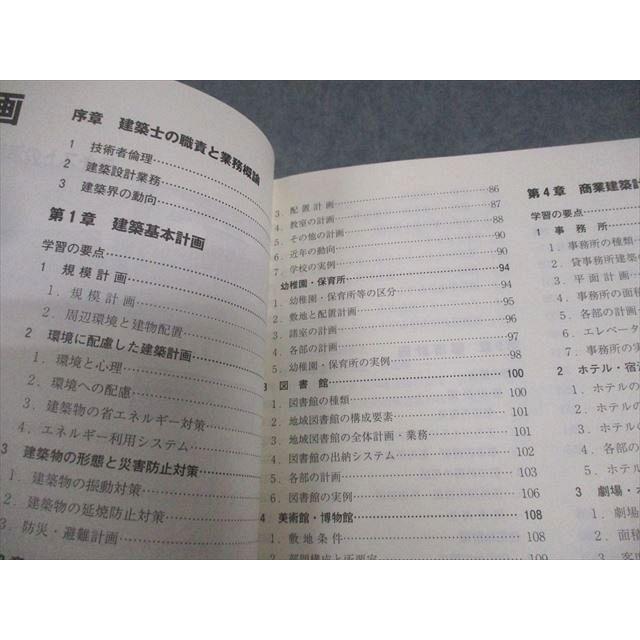 画
序章　建築士の職責と業務概論
1　技術者倫理
2　建築設計業務
3　建築界の動向
第1章　建築基本計画
学習の要点
1　規模計画
1．規模計画
2．周辺環境と建物配置
2　環境に配慮した建築計画
1．環境と心理
2．環境への配慮
3．建築物の省エネルギー対策
4．エネルギー利用システム
3　建築物の形態と災害防止対策
1．建築物の振動対策
2．建築物の延焼防止対策
3．防災・避難計画
3．配置計画 86
4．教室の計画 87
5．その他の計画 88
6．近年の動向 90
7．学校の実例 90
幼稚園・保育所 94
1．幼稚園・保育所等の区分 94
2．敷地と配置計画 95
3．諸室の計画 96
4．各部の計画 97
5．幼稚園・保育所の実例 98
3　図書館 100
1．図書館の種類 100
2．地域図書館の構成要素 101
3．地域図書館の全体計画・業務 101
4．図書館の出納システム 102
5．各部の計画 103
6．図書館の実例 106
4　美術館・博物館 108
1．敷地条件 108
2．部門構成と所要室 109
第4章　商業建築計
学習の要点
1　事務所
1．事務所の種類
2．貸事務所建築の
3．平面計画
4．事務所の面積
5．各部の計画
6．エレベータ
7．事務所の実
2　ホテル・宿
1．ホテルの
2．ホテルの
3．ホテルの
4．各部
5．ホテ
3　劇場・
1．劇場
2．面積
3．客席